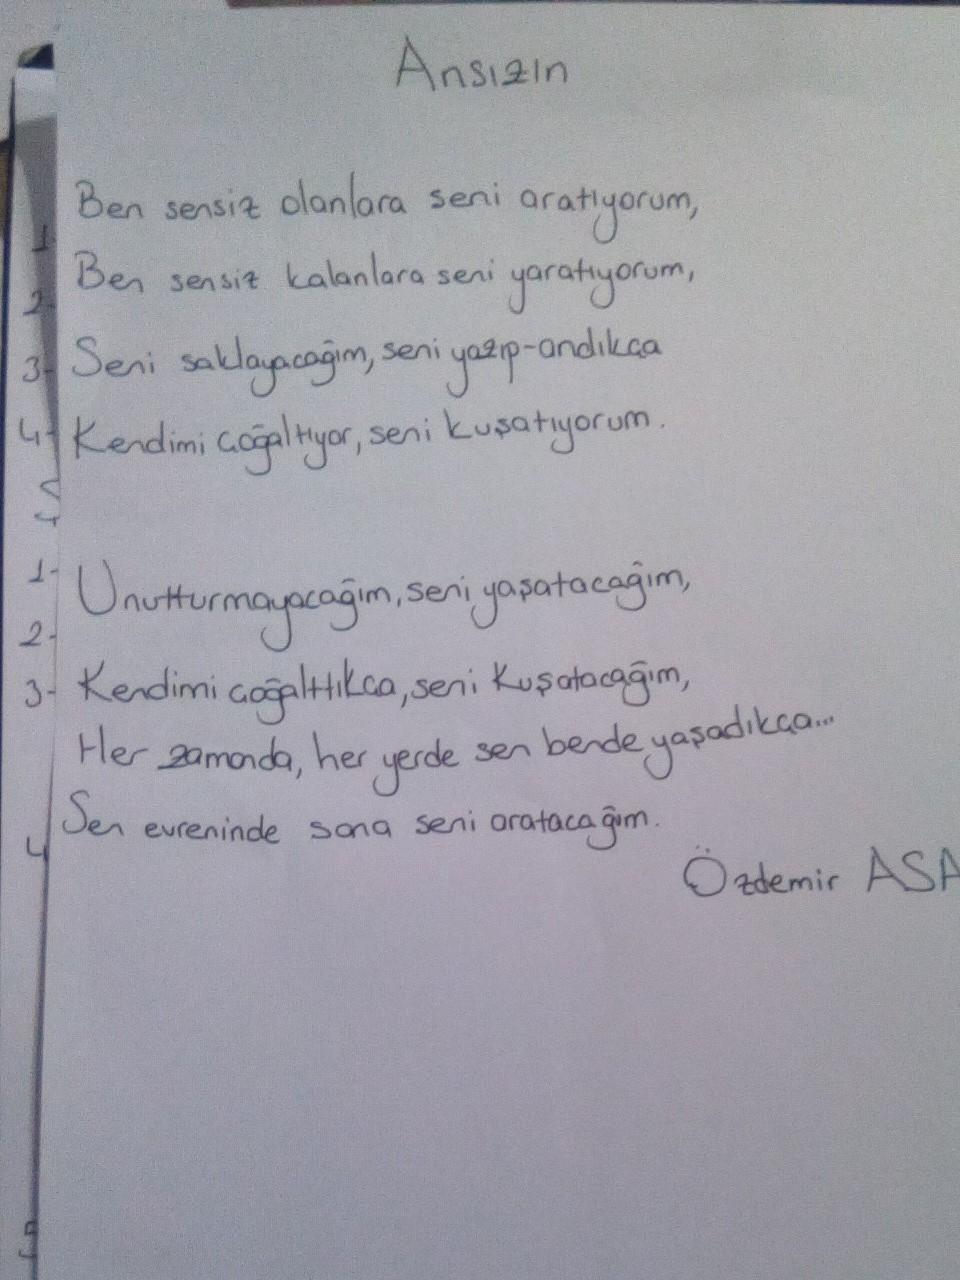 Ansızın
Ben sensiz olanlara seni aratıyorum,
1
Ben sensiz kalanlara seni yaratıyorum,
2-
3- Seni saklayacağım, seni yazıp-andıkca
4- Kendimi coğaltıyor, seni kuşatıyorum.
5
1- Unutturmayacağım, seni yaşatacağım,
2-
3- Kendimi coğalttıkca, seni kuşatacağım,
Her zamanda, her yerde sen bende yaşadıkca...
Sen evreninde sana seni aratacağım.
4
Özdemir ASA
5